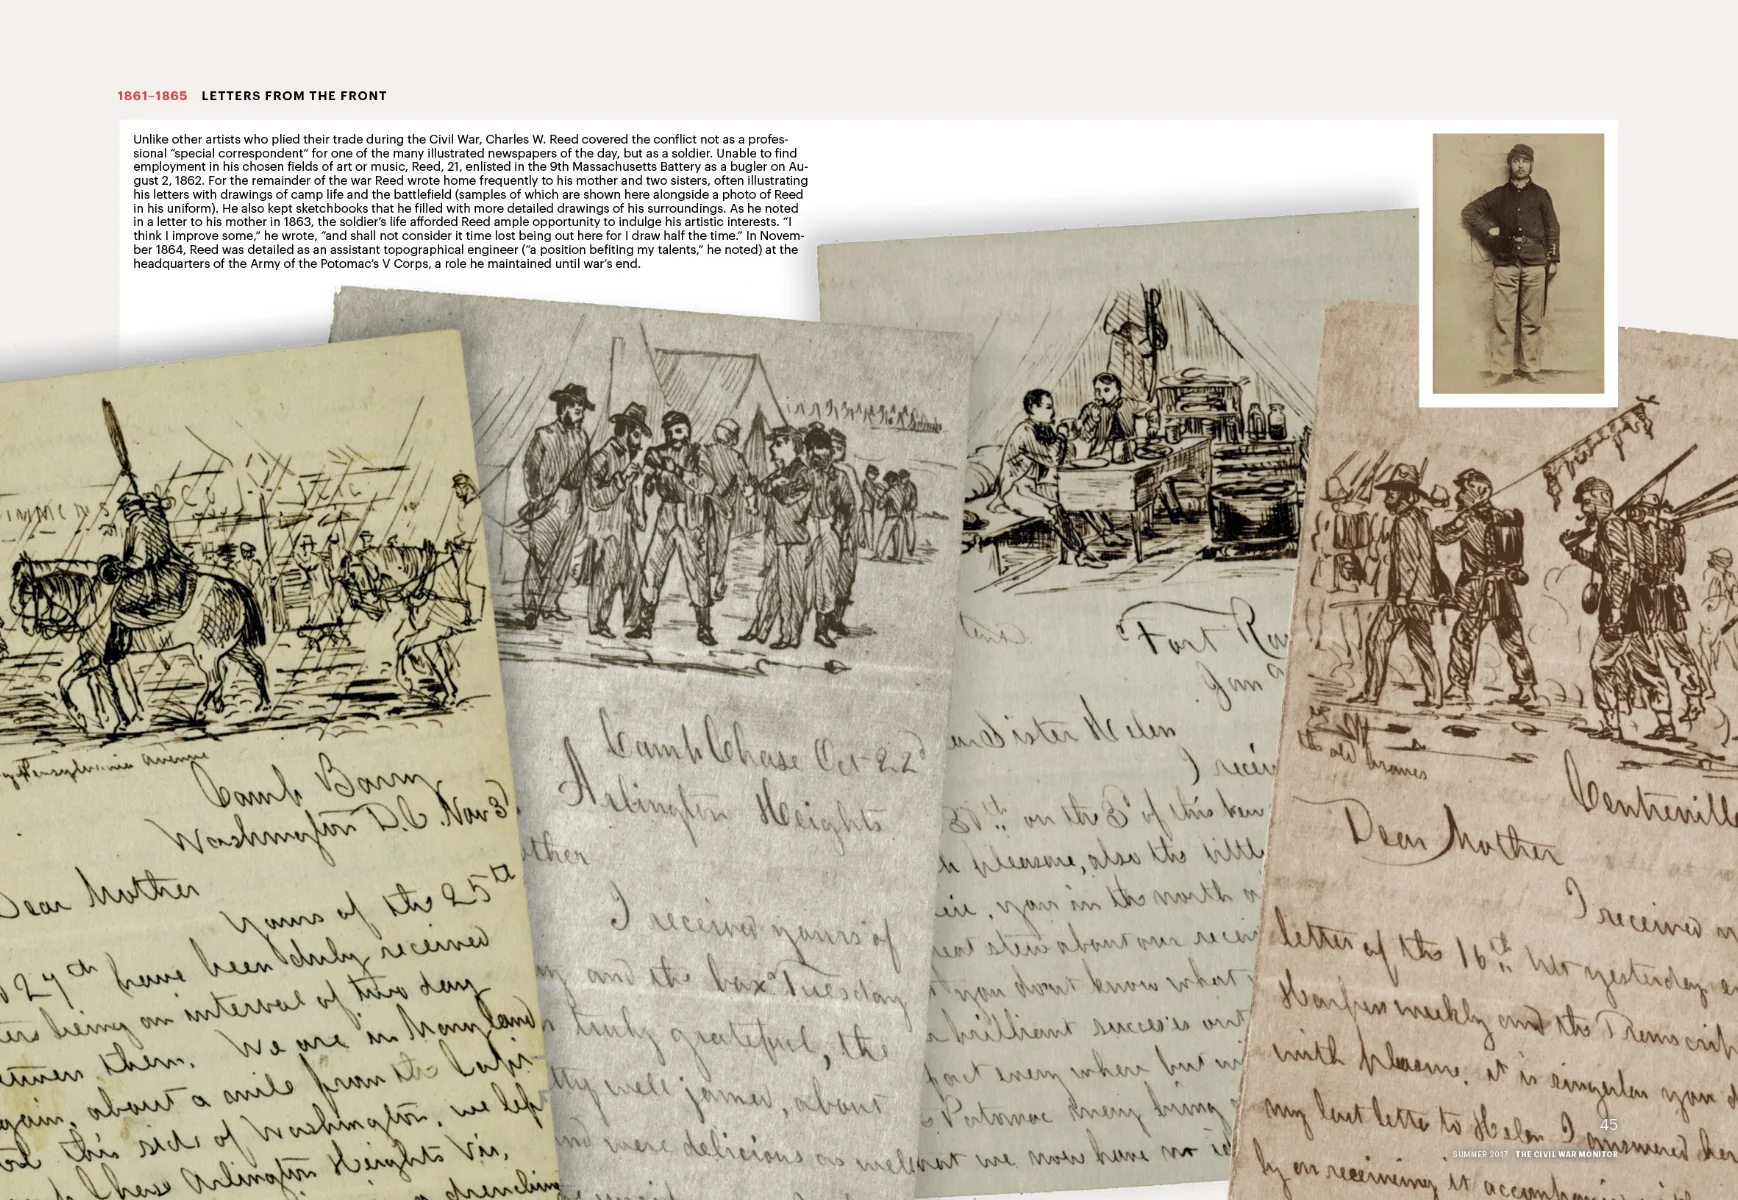 1861–1865 LETTERS FROM THE FRONT
Unlike other artists who plied their trade during the Civil War, Charles W. Reed covered the conflict not as a profes-
sional “special correspondent” for one of the many illustrated newspapers of the day, but as a soldier. Unable to find
employment in his chosen fields of art or music, Reed, 21, enlisted in the 9th Massachusetts Battery as a bugler on Au-
gust 2, 1862. For the remainder of the war Reed wrote home frequently to his mother and two sisters, often illustrating
his letters with drawings of camp life and the battlefield (samples of which are shown here alongside a photo of Reed
in his uniform). He also kept sketchbooks that he filled with more detailed drawings of his surroundings. As he noted
in a letter to his mother in 1863, the soldier’s life afforded Reed ample opportunity to indulge his artistic interests. “I
think I improve some,” he wrote, “and shall not consider it time lost being out here for I draw half the time.” In Novem-
ber 1864, Reed was detailed as an assistant topographical engineer (“a position befiting my talents,” he noted) at the
headquarters of the Army of the Potomac’s V Corps, a role he maintained until war’s end.
Pensylvania Avenue
Camp Barry
Washington D.C. Nov 3d
Dear Mother
Yours of the 25th
27th have been duly received
being an interval of two day
them. We are in Maryland
again, about a mile from the
this side of Washington, we left
Chase Arlington Heights Va.
drenching
Camp Chase Oct 22d
Arlington Heights
other
I received yours of
and the box Tuesday
truly grateful, the
well jamed, about
and more delicious
Fort
Jan
Sister Helen
I
on the 3d of this
pleasure, also the
you in the north
about our
you dont know what
brilliant success
every where but
Potomac
we now have no
old braves
Centreville
Dear Mother
I received
letter of the 16th yesterday
Harpers weekly and the
with pleasure. it is singular you
my last letter to Helen I answered her
by on receiving it
45
SUMMER 2017 THE CIVIL WAR MONITOR